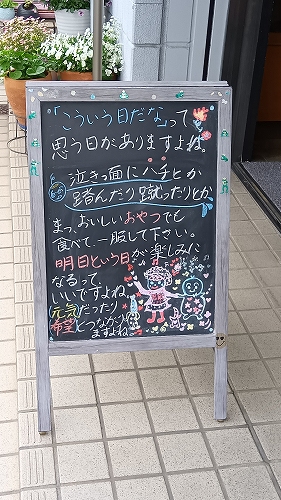 「こういう日だな」って
思う日がありますよね。
泣きっ面にハチとか
踏んだり蹴ったりとか
まっ、おいしいおやつでも
食べて、一服して下さい。
明日という日が楽しみに
なるって
いいですよね。
元気だったり
希望とつながり
ますよね。